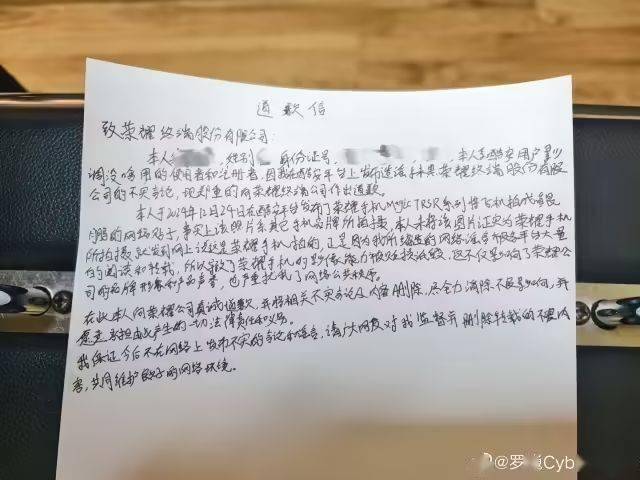 道歉信
致荣耀终端股份有限公司:
本人 ,性别 身份证号, ,本人系酷安用户
调没啥用的使用者和注册者,因我在酷安平台上发布造谣未来荣耀终端股份有限
公司的不实言论,现郑重的向荣耀终端公司作出道歉。
本人于2024年12月24日在酷安平台发布了荣耀手机Magic7RSR系列 飞机拍成
的网络贴子,事实上该照片系其它手机品牌所拍摄,本人未将该图片证实为荣耀手机
所拍摄就发到网上说这是荣耀手机拍的,正是因为我所编造的网络谣言被各平台大量
的阅读和转载,所以导致了荣耀手机的影像能力被贬技诋毁,这不仅影响了荣耀公
司的品牌形象和产品声誉,也严重扰乱了网络公共秩序。
在此本人向荣耀公司真诚道歉,并将相关不实言论及内容删除,尽全力消除不良影响,并
愿意承担由此产生的一切法律责任和义务。
我保证今后不在网络上发布不实的言论和谣言,请广大网友对我监督并删除转载的不要内
容,共同维护良好的网络环境。
@罗 Cyb